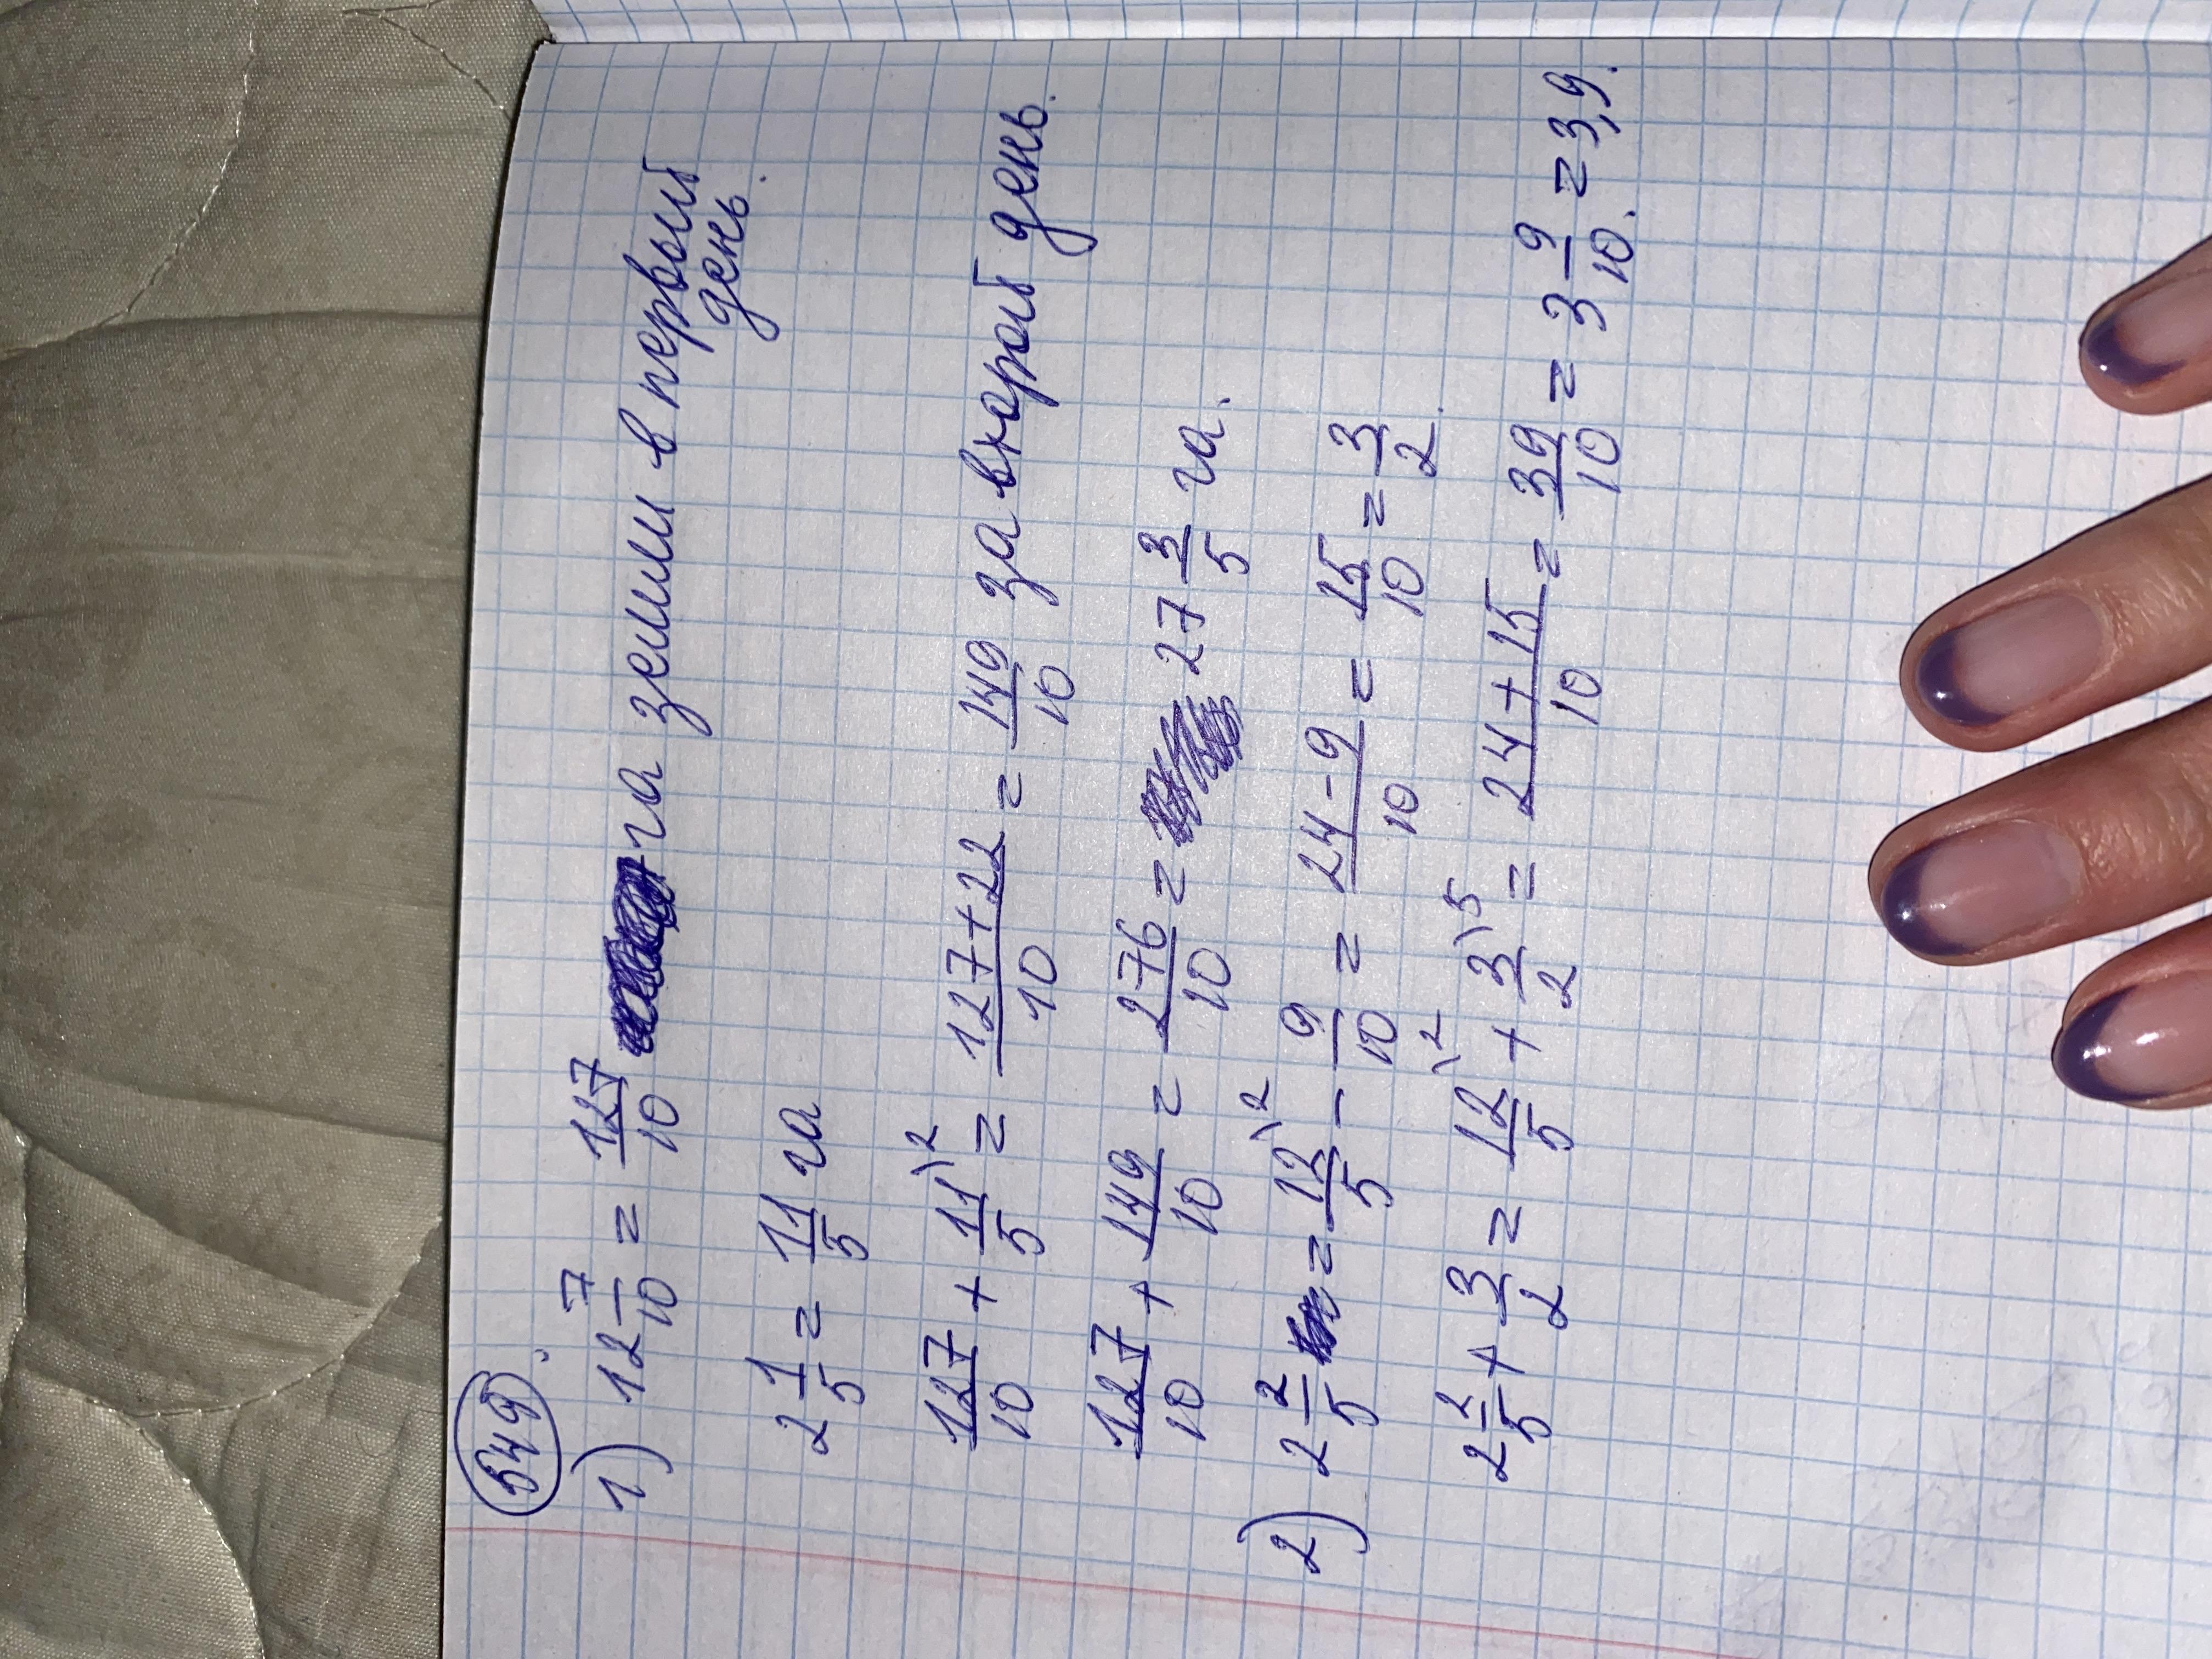 549.
1) 12 7/10 = 127/10 га земли в первый
день.
2 1/5 = 11/5 га
127/10 + 11/5 \2 = 127+22/10 = 149/10 за второй день.
127/10 + 149/10 = 276/10 = 27 3/5 га.
2) 2 2/5 = 12/5 \2 - 9/10 = 24-9/10 = 15/10 = 3/2.
2 2/5 + 3/2 = 12/5 \2 + 3/2 \5 = 24+15/10 = 39/10 = 3 9/10. = 3,9.